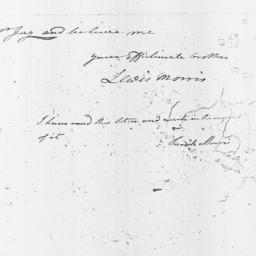 Jay and believe me
your affectionate brother
Lewis Morris
I have read this letter and
of it
Morris